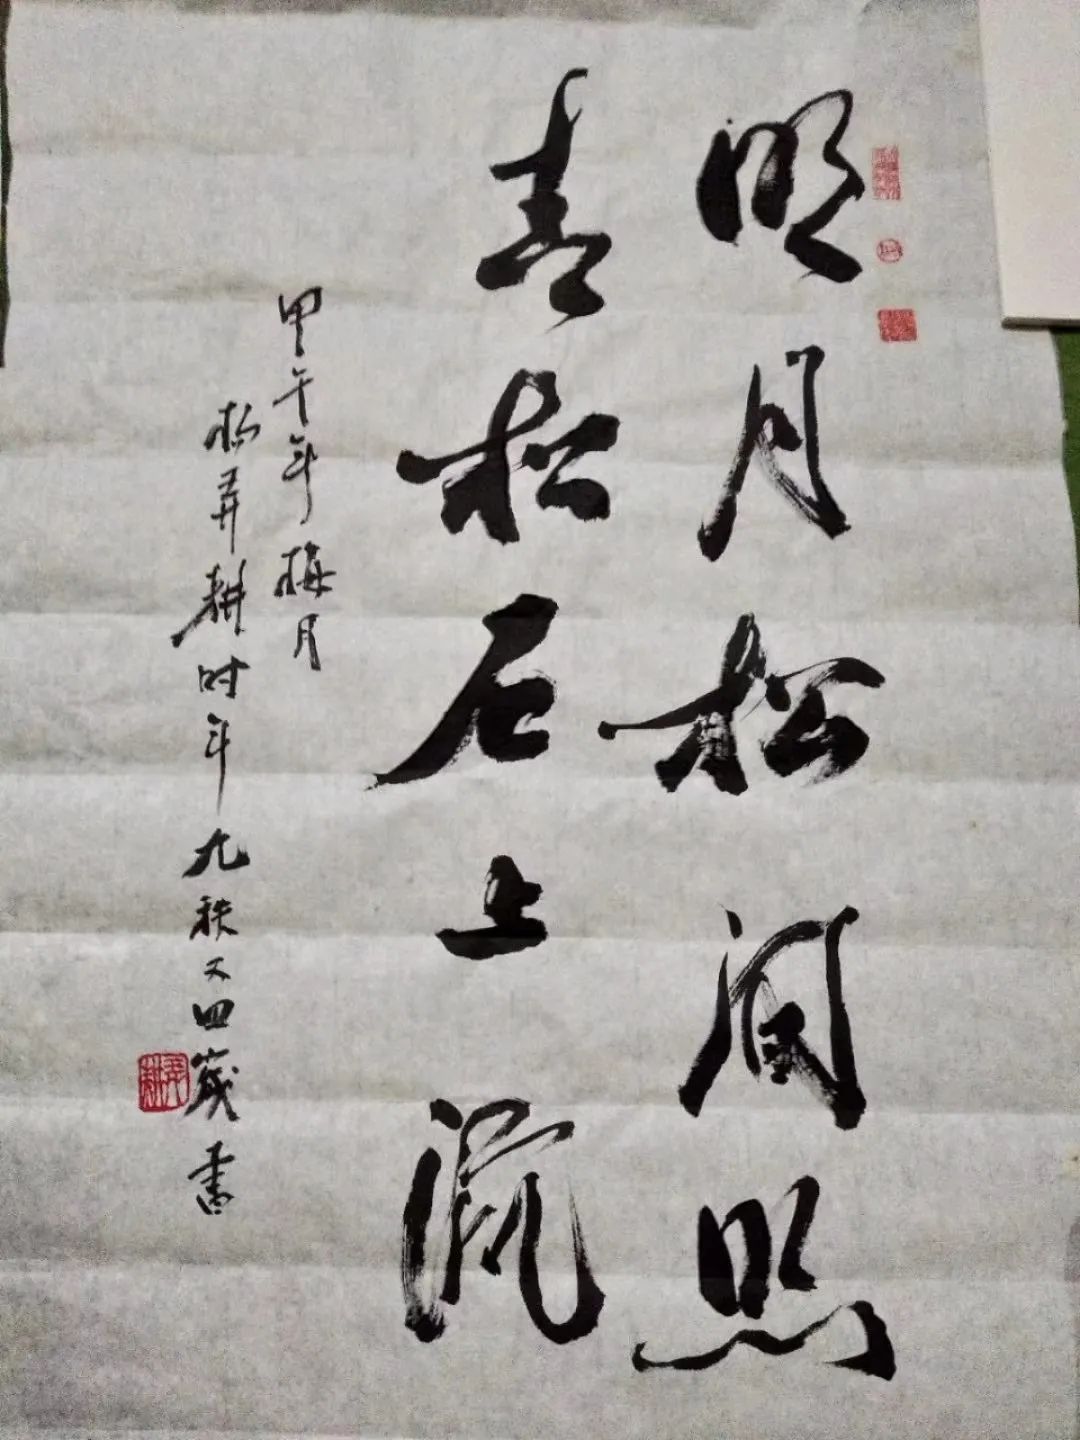 明月松间照
青松石上流
甲午年梅月
杨弄耕时年九秩又四嵗書